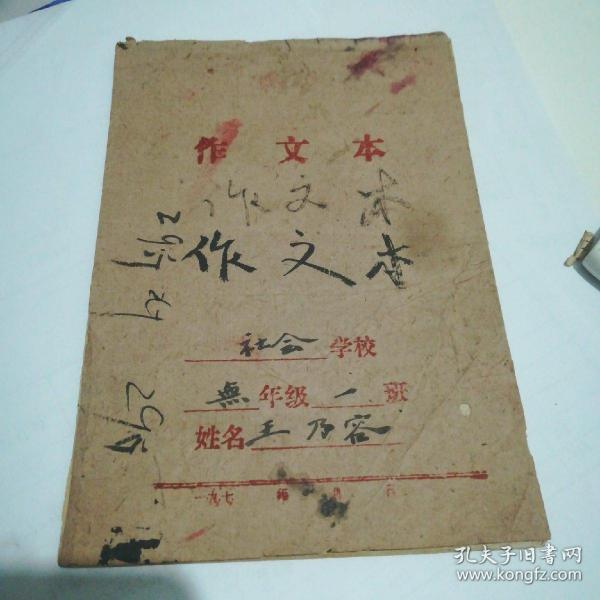 作文本
作文本
作文本
社会学校
無年级一班
姓名王乃容
一九七 年 月 日
孔夫子旧书网
www.kongfz.com